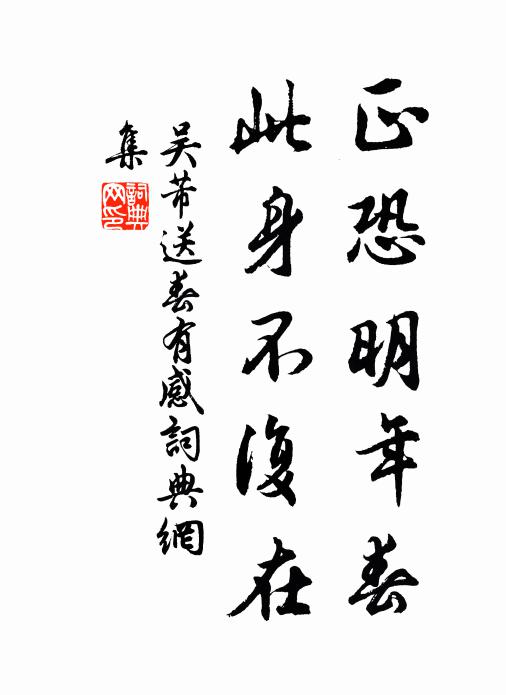 正恐明年春
此身不復在
吴芾送春有感詞典網
集
詞典
网印